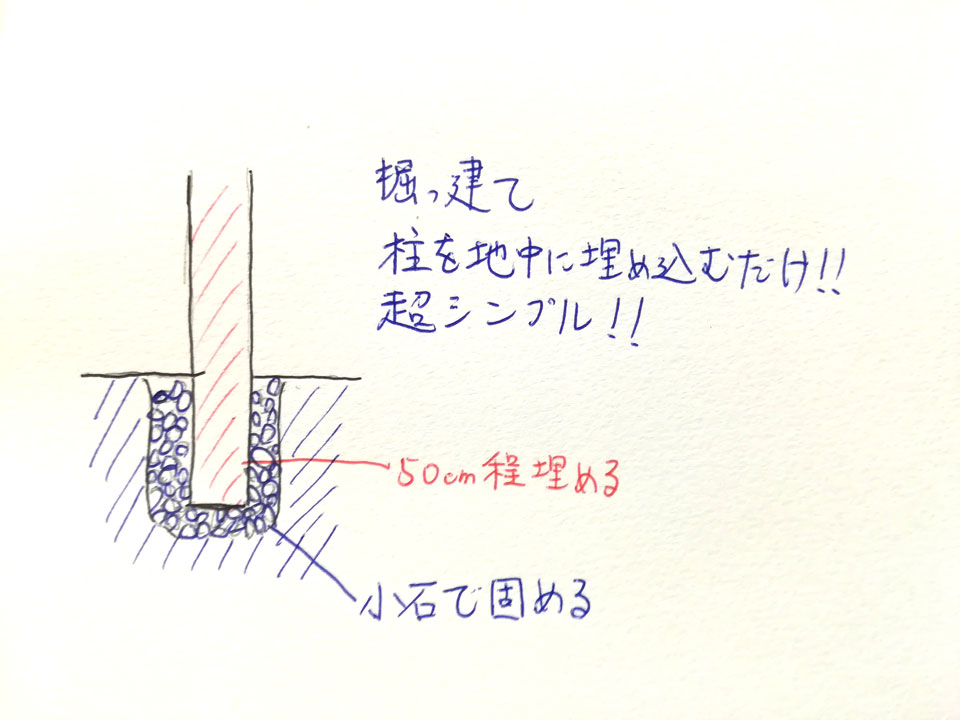 掘っ建て
柱を地中に埋め込むだけ!!
超シンプル!!
50cm程埋める
小石で固める